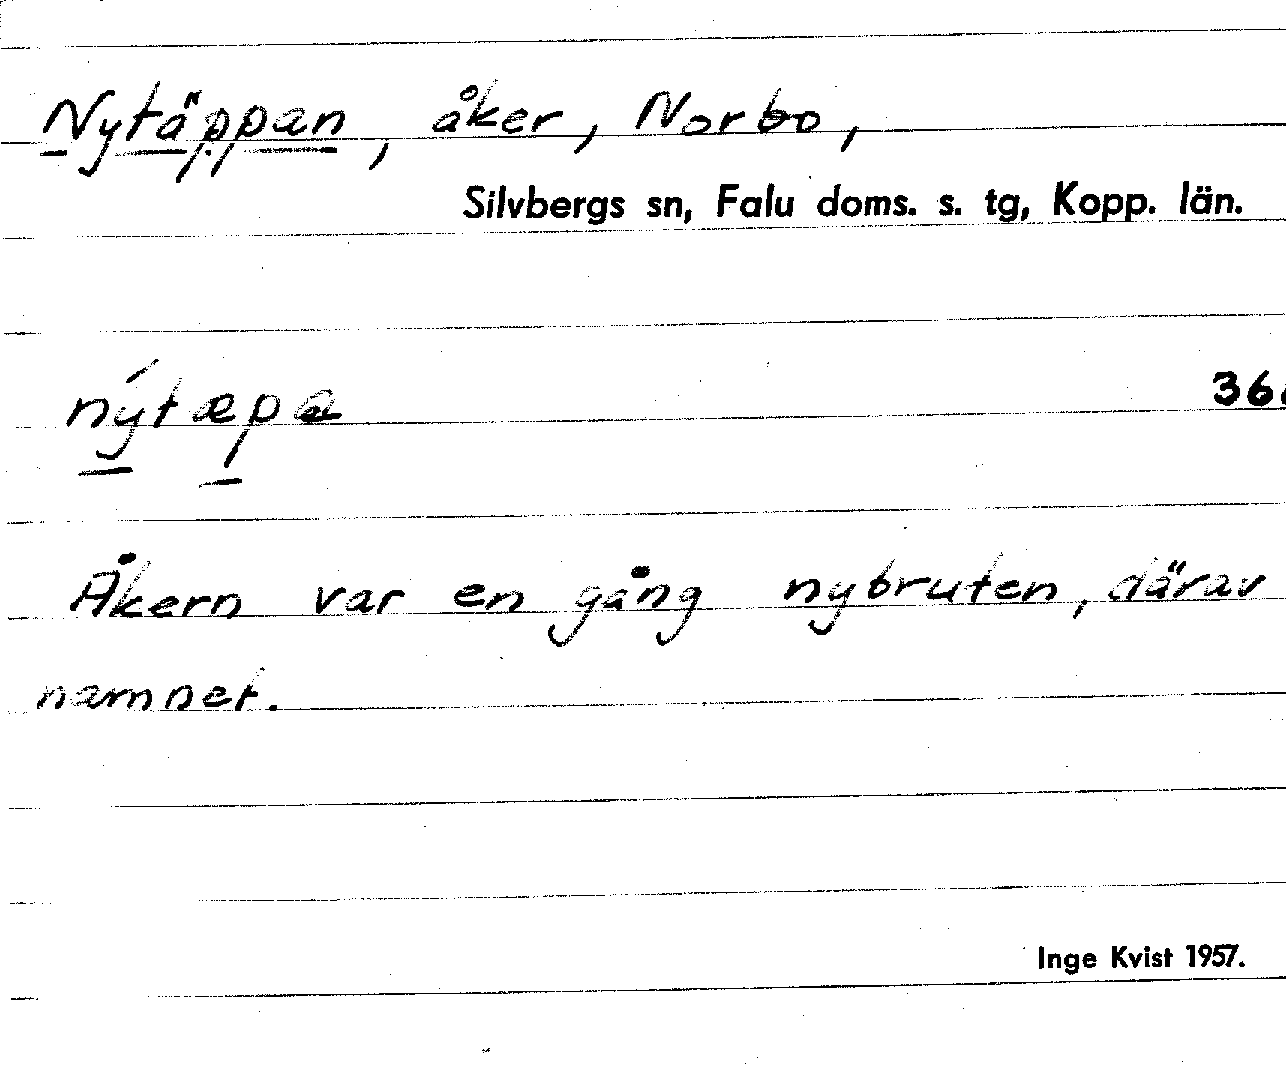 Nytäppan, åker, Norbo,
Silvbergs sn, Falu doms. s. tg, Kopp. län.
nýtæpa
36
Åkern var en gång nybruten, därav
namnet.
Inge Kvist 1957.